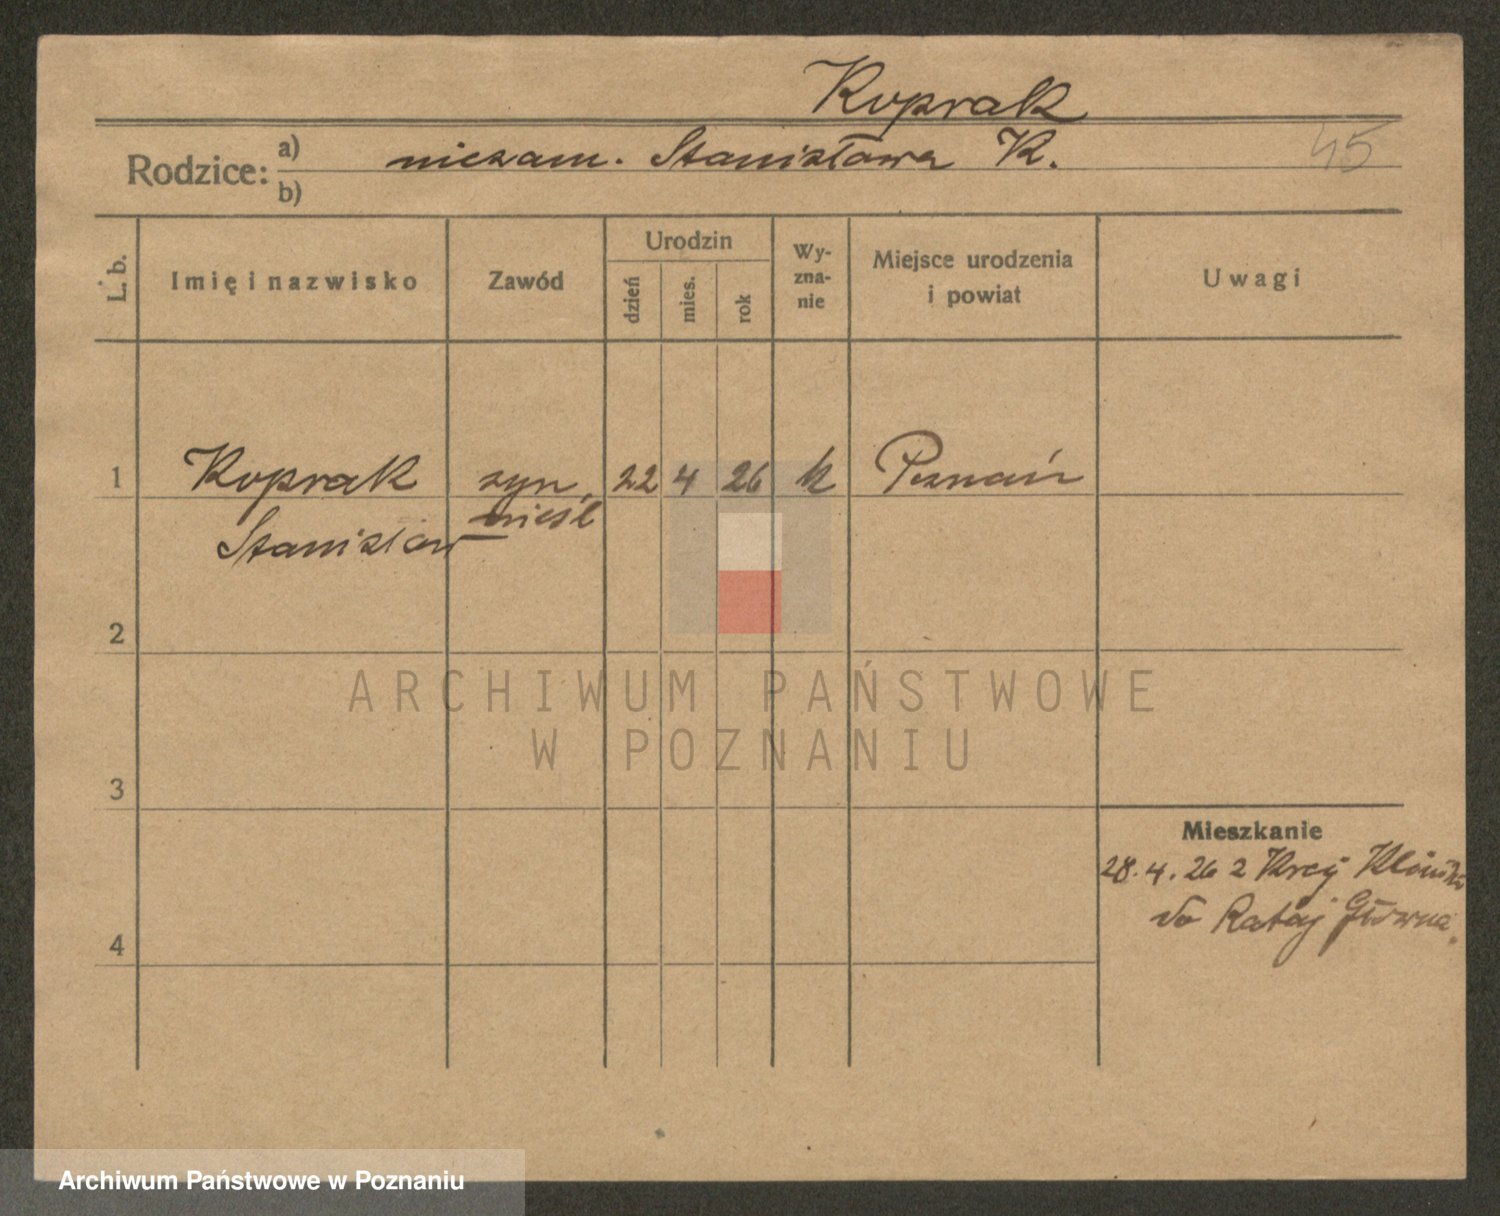 Koprak
45
Rodzice: a) niezam. Stanisława K.
b)
L. b. Imię i nazwisko Zawód Urodzin dzień mies. rok Wy-zna-nie Miejsce urodzenia i powiat Uwagi
1 Koprak syn, 22 4 26 k Poznań
Stanisław nieśl
2
ARCHIWUM PAŃSTWOWE
W POZNANIU
3
Mieszkanie
28. 4. 26 2
4 do Rataj Główna.
Archiwum Państwowe w Poznaniu